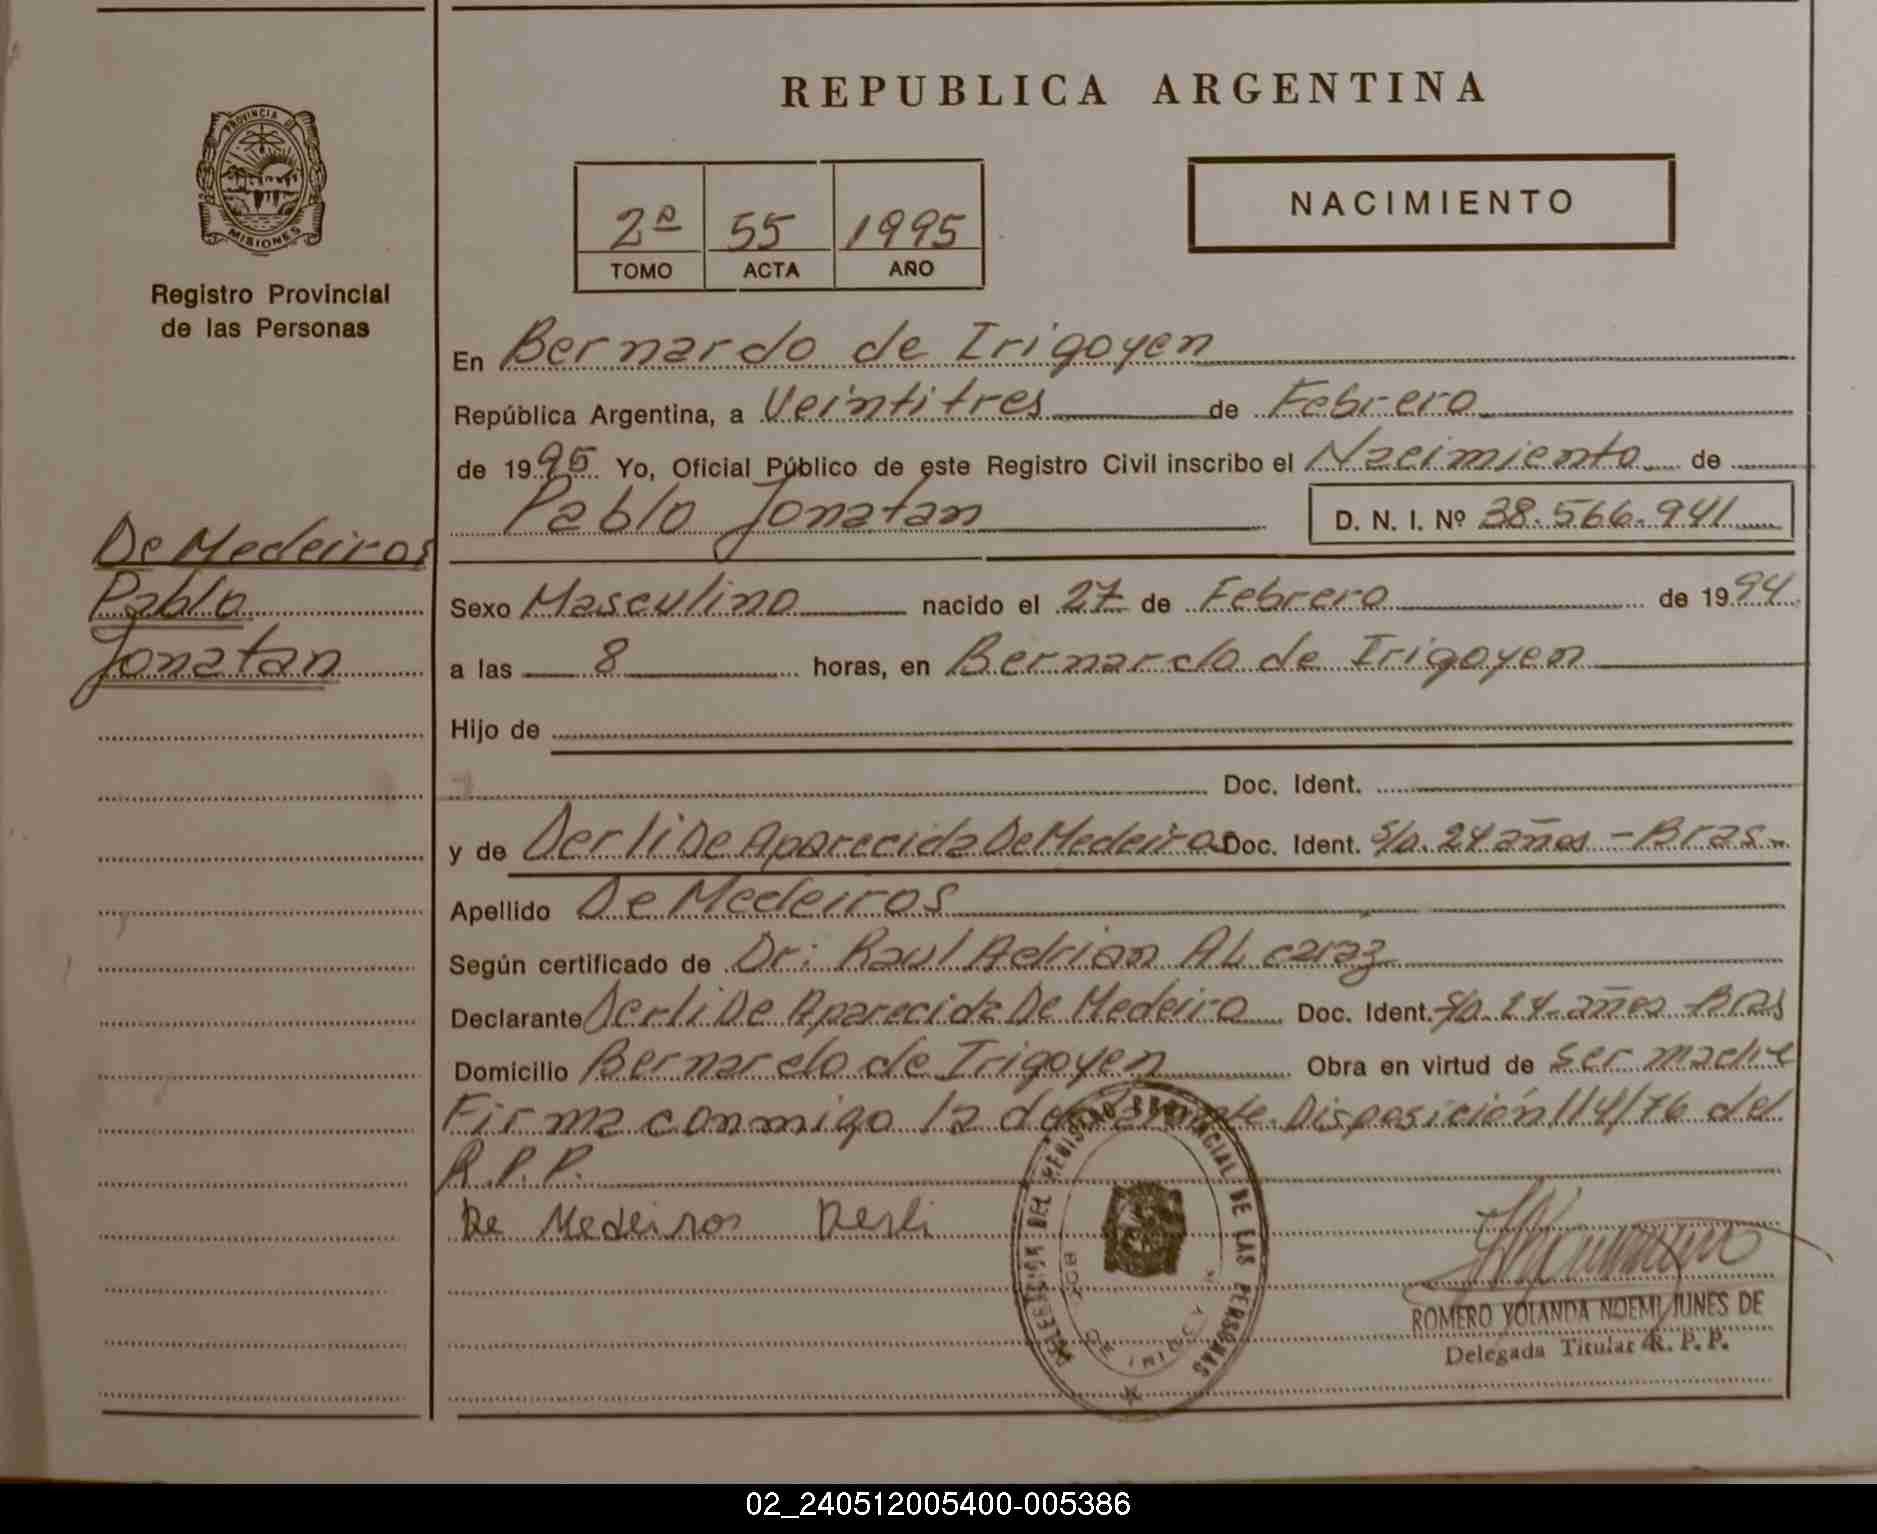 REPUBLICA ARGENTINA
PROVINCIA DE
MISIONES
Registro Provincial
de las Personas
2º 55 1995
TOMO ACTA AÑO
NACIMIENTO
En Bernardo de Irigoyen
República Argentina, a Veintitres de Febrero
de 1995 Yo, Oficial Público de este Registro Civil inscribo el Nacimiento de
Pablo Jonatan D. N. I. Nº 38.566.941
De Medeiros
Pablo
Jonatan
Sexo Masculino nacido el 27 de Febrero de 1994
a las 8 horas, en Bernardo de Irigoyen
Hijo de
Doc. Ident.
y de Derli De Aparecida De Medeiros Doc. Ident. S/D. 24 años - Bras.
Apellido De Medeiros
Según certificado de Dr: Raul Adrian ALcaraz
Declarante Derli De Aparecida De Medeiro Doc. Ident. S/D. 24 años Bras
Domicilio Bernardo de Irigoyen Obra en virtud de ser madre
Firma conmigo la declarante. Disposición 114/76 del
R.P.P.
De Medeiros Derli
DELEGACION DEL REGISTRO PROVINCIAL DE LAS PERSONAS
ROMERO YOLANDA NOEMI JUNES DE
Delegada Titular R. P. P.
02_240512005400-005386